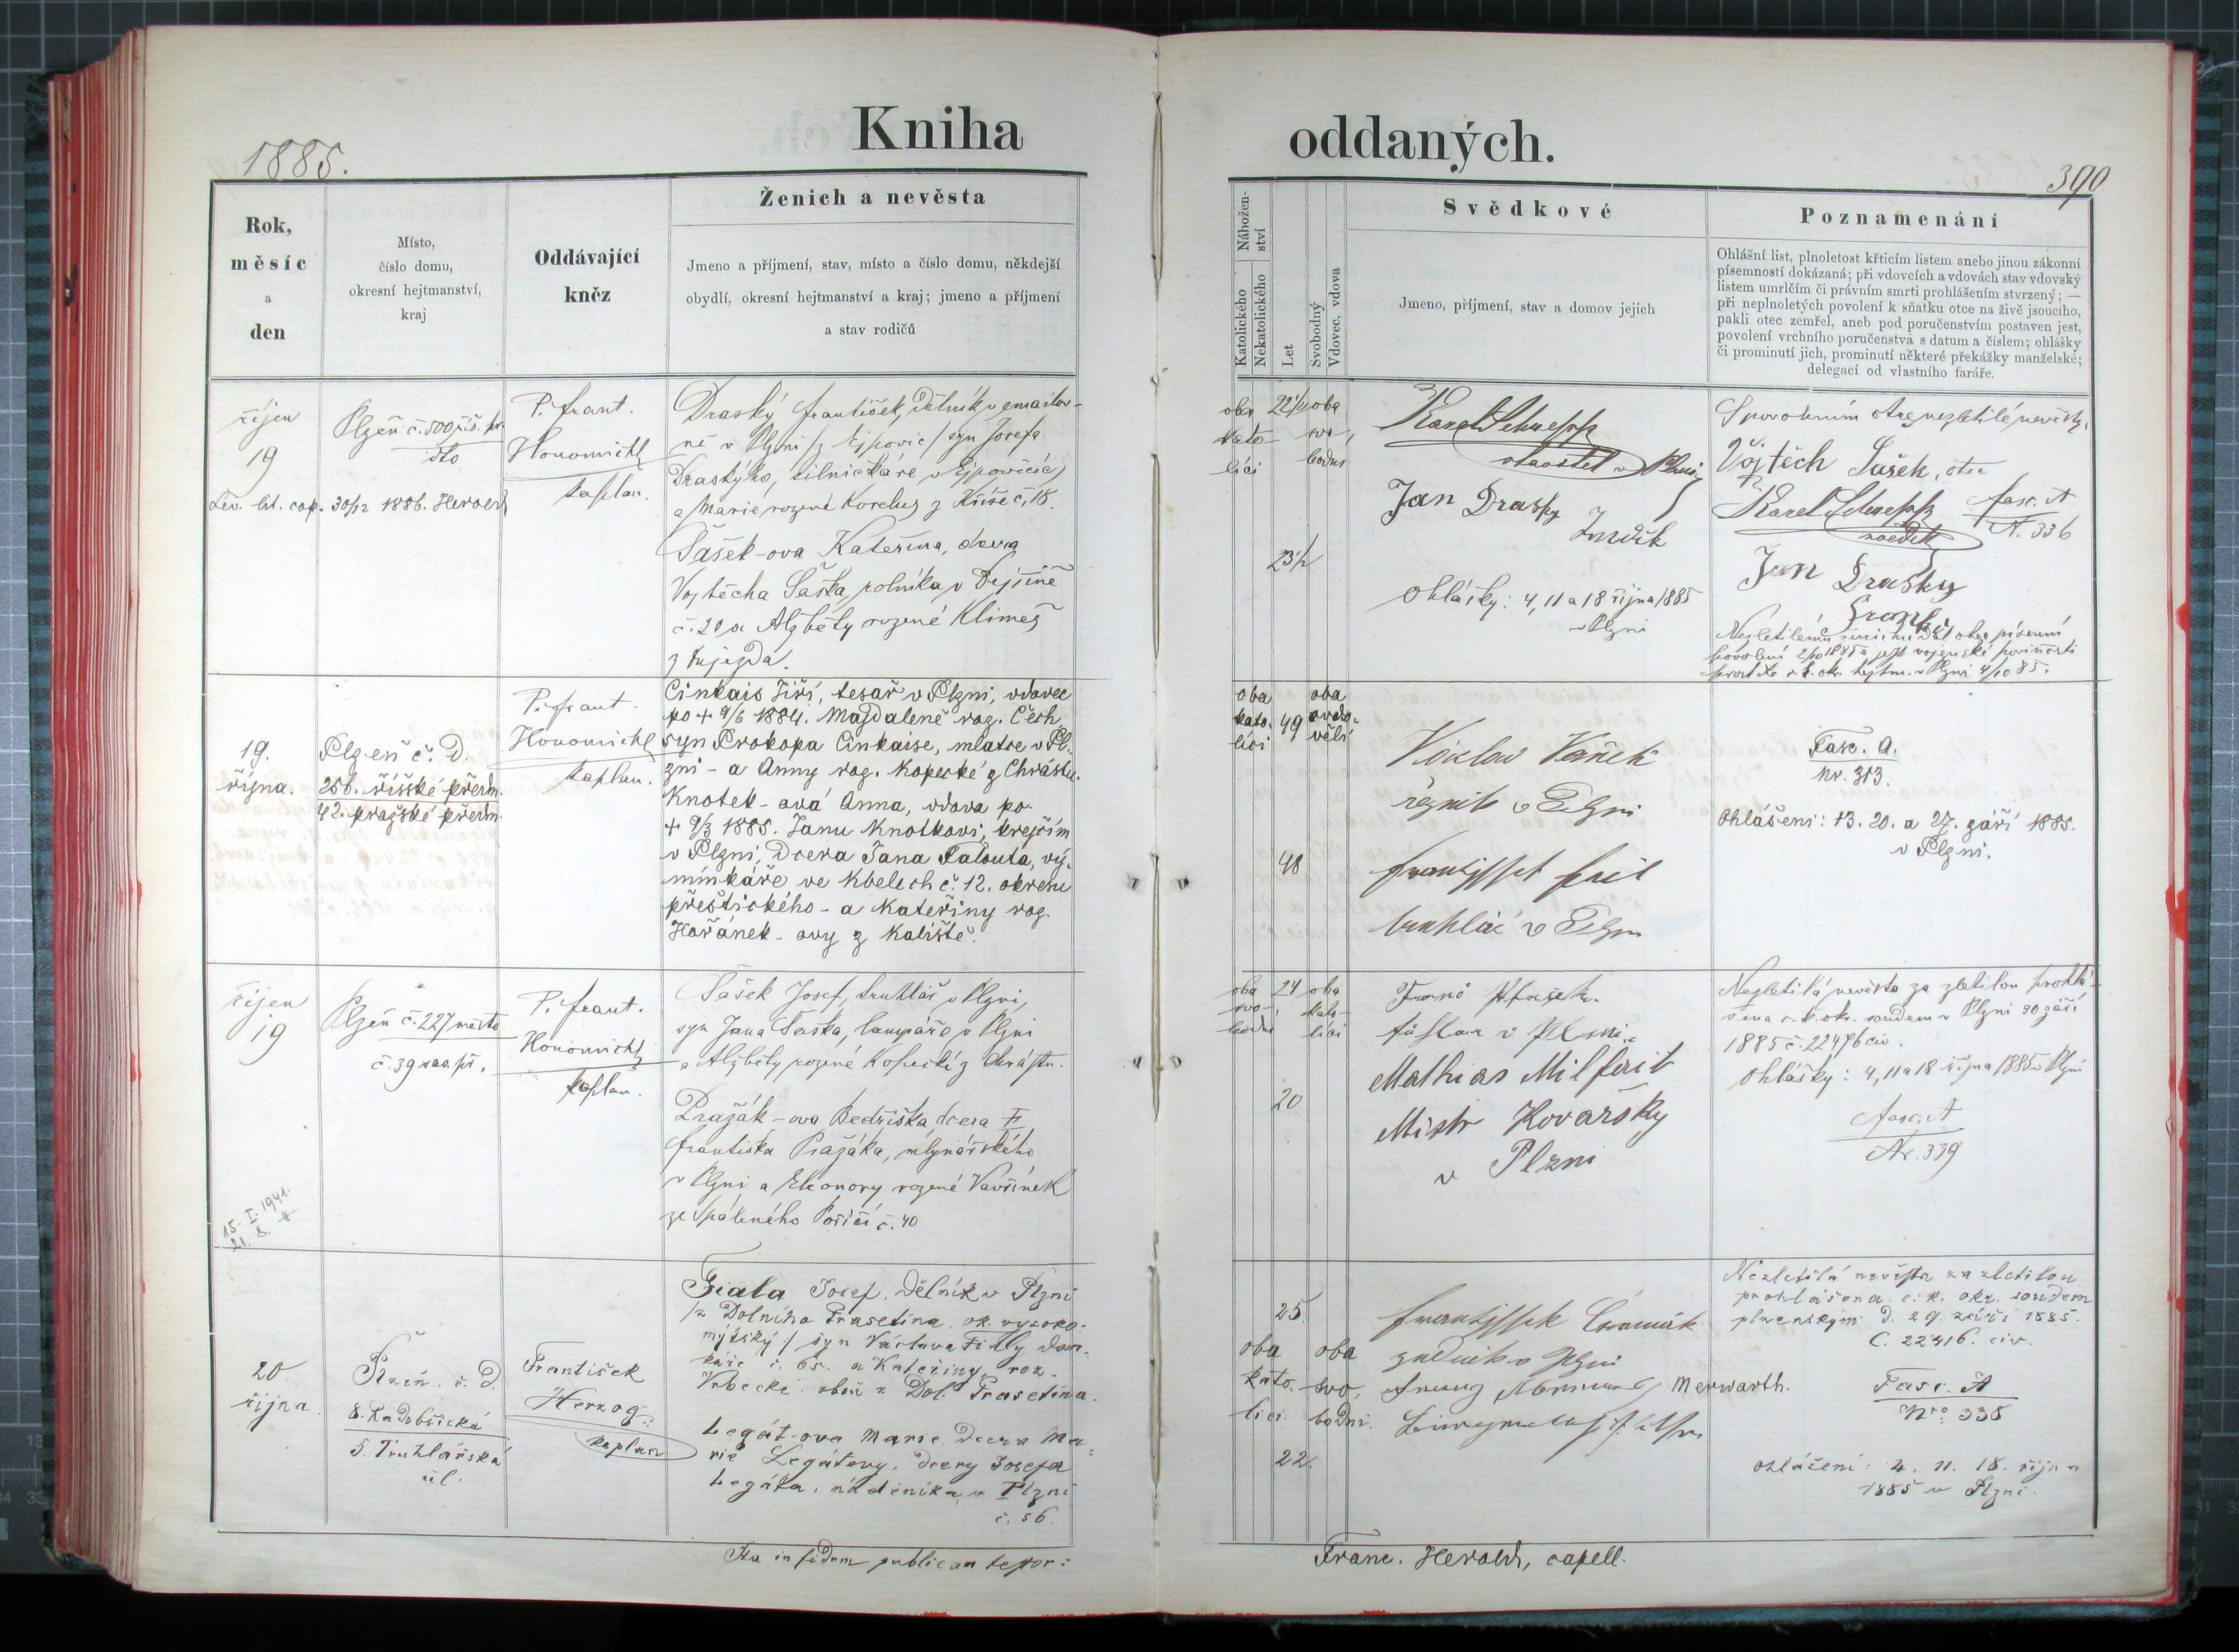 1885.
Kniha
oddaných.
390.
Rok,
měsíc
a
den
Místo,
číslo domu,
okresní hejtmanství,
kraj
Oddávající
kněz
Ženich a nevěsta
Jmeno a příjmení, stav, místo a číslo domu, někdejší
obydlí, okresní hejtmanství a kraj; jmeno a příjmení
a stav rodičů
Nábožen-
ství
Katolického
Nekatolického
Let
Svobodný
Vdovec, vdova
Svědkové
Jmeno, příjmení, stav a domov jejich
Poznamenání
Ohlášní list, plnoletost křticím listem anebo jinou zákonní
písemností dokázaná; při vdovcích a vdovách stav vdovský
listem umrlčím či právním smrti prohlášením stvrzený; —
při neplnoletých povolení k sňatku otce na živě jsoucího,
pakli otec zemřel, aneb pod poručenstvím postaven jest,
povolení vrchního poručenstva s datum a číslem; ohlášky
či prominutí jich, prominutí některé překážky manželské;
delegací od vlastního faráře.
říjen
19
Lev. lit. cop. 30/12 1886. Herold
Plzeň č. 500 říš. př.
dto
P. Frant.
Honomichl
kaplan.
Draský František, dělník v emailov-
ně v Plzni / z Ejpovic / syn Josefa
Draskýho, silničkáře v Ejpovicích
a Marie rozené Korelus z Kříše č. 18.
Šašek-ova Kateřina, dcera
Vojtěcha Šaška, rolníka v Dejšině
č. 20 a Alžběty rozené Klimeš
z Aujezda.
oba
kato-
líci
22 1/2
oba
svo-
bodni
23 1/2
Karel Schnepp
v Plzni
Jan Drasky
Ohlášky: 4, 11 a 18 října 1885
v Plzni
S povolením otce nezletilé nevěsty.
Vojtěch Šašek, otec
Karel Schnepp
svědek
fasc. A
N. 336
Jan Drasky
Nezletilému ženichu dal otec písemní
povolení 2/10 1885 a jest vojenské povinnosti
c. k. okr. hejtm. v Plzni 4/10 85.
19.
října.
Plzeň č. D.
256. říšské předm.
42. pražské předm.
P. Frant.
Honomichl
kaplan.
Cinkais Jiří, tesař v Plzni, vdovec
po + 9/6 1884. Magdaleně roz. Čech,
syn Prokopa Cinkaise, mlatce v Pl-
zni - a Anny roz. Kopecké z Chrástu.
Knotek-ová Anna, vdova po
+ 9/3 1885. Janu Knotkovi, krejčím
v Plzni, dcera Jana Faťouta, vý-
minkáře ve Kbelech č. 12. okresu
přeštického - a Kateřiny roz.
Hořánek-ovy z Kaliště.
oba
kato-
líci
49
oba
ovdo-
vělí
48
Václav Vaněk
řezník v Plzni
Frantisstek
truhlář v Plzni
Fasc. A.
Nr. 313.
Ohlášeni: 13. 20. a 27. září 1885.
v Plzni.
říjen
19
15. I. 1941.
21. 8.
Plzeň č. 227 město
č. 39 sas. př.
P. Frant.
Honomichl
kaplan.
Šašek Josef, truhlář v Plzni,
syn Jana Šaška, lampáře v Plzni
a Alžběty rozené Kopecké z Chrástu.
Pražák-ova Bedřiška, dcera †
Františka Pražáka, mlynářského
v Plzni a Eleonory rozené Vavřínek
ze Spáleného Poříčí č. 40
oba
svo-
bodni
24
oba
kato-
líci
20
v Plzni
Mathias Milfait
Mistr Kovařsky
v Plzni
Nezletilá nevěsta za zletilou prohlá-
šena c. k. okr. soudem v Plzni 30 září
1885 č. 22476 civ.
Ohlášky: 4, 11 a 18 října 1885 v Plzni
fasc. A
Nr. 339
20
října
Plzeň. č. d.
8. Radobčická
5. Truhlářská
ul.
František
Herzog
kaplan
Fiala Josef, dělník v Plzni
/z Dolního Třasetína, ok. vysoko-
mýtský/ syn Václava Fialy dom-
káře č. 65. a Kateřiny roz.
Vrbecké, oboú z Dol. Trasetína.
Legát-ova Marie, dcera Ma-
rie Legátovy, dcery Josefa
Legáta, nádeníka v Plzni
č. 56.
25.
oba
kato-
líci
oba
svo-
bodni.
22.
Frantissek
zedník v Plzni
Merwarth.
Nezletilá nevěsta za zletilou
prohlášena c. k. okr. soudem
plzenským d. 29. září 1885.
č. 22416. civ.
Fasc. A
Nro 335
Ohlášeni: 4. 11. 18. října
1885 v Plzni.
Ita in fidem publicam testor:
Franc. Herold, capell.